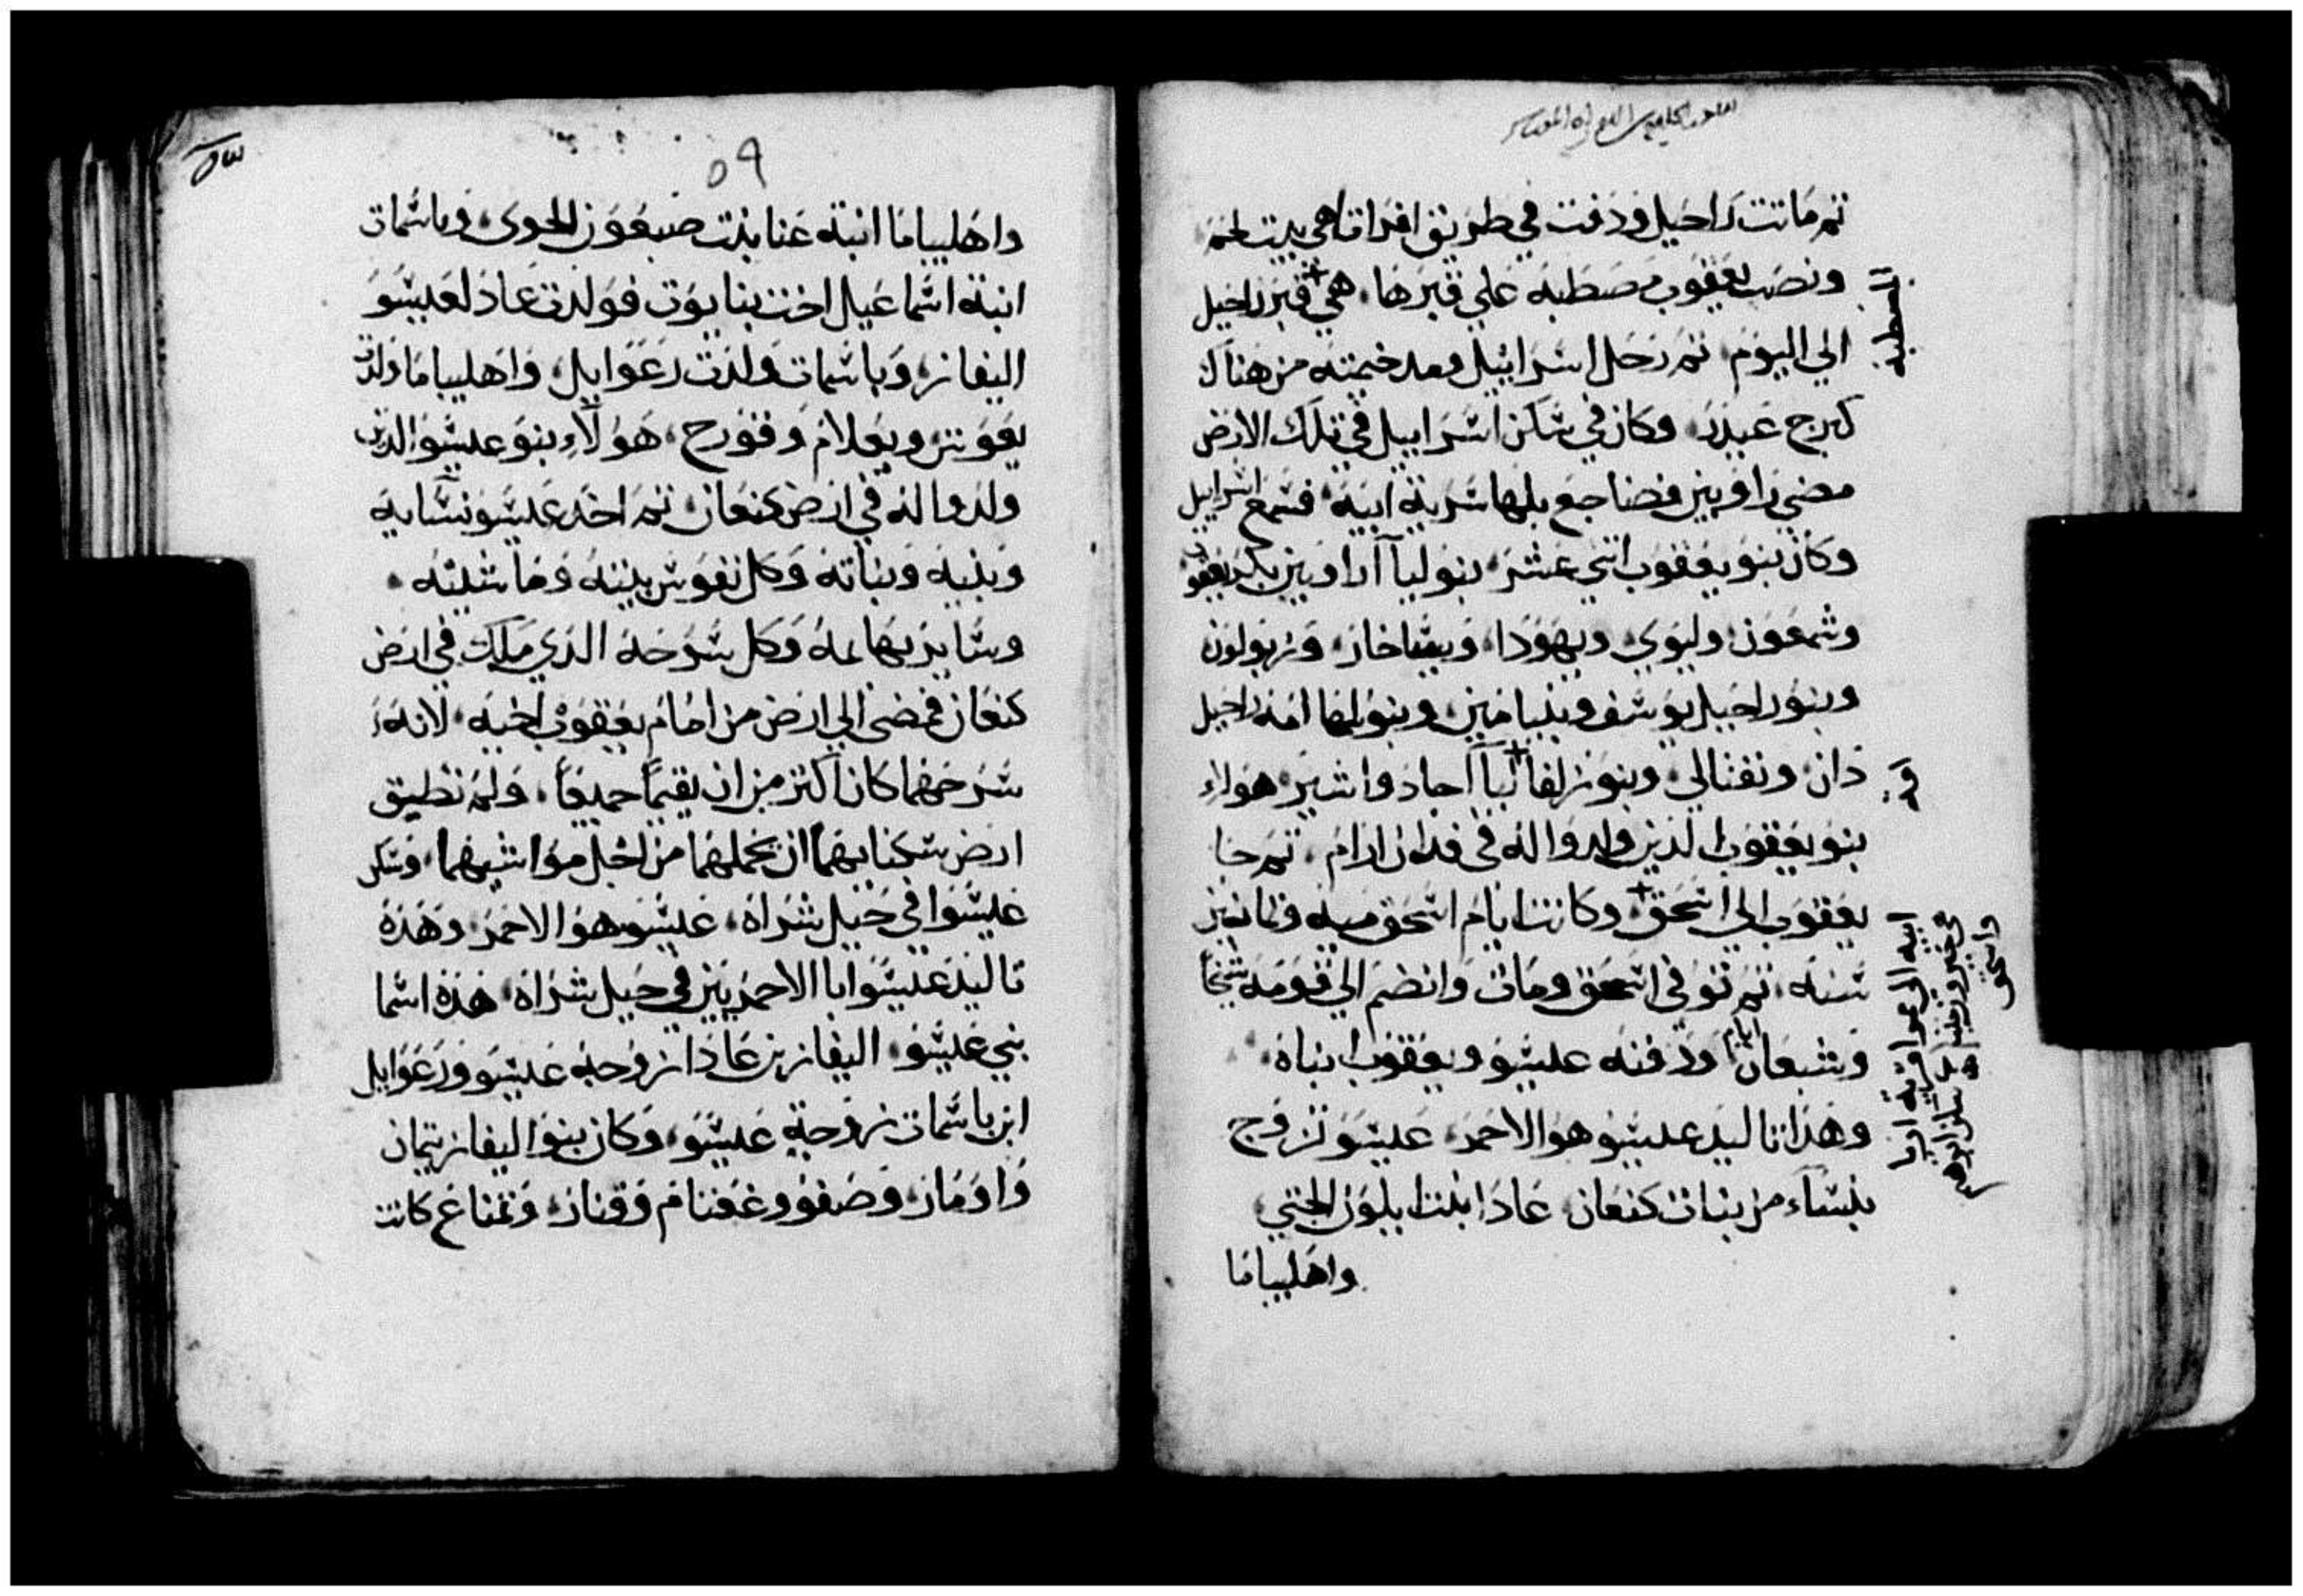 ثم ماتت راحيل ودفنت في طريق افراتا هي بيت لحم
ونصب يعقوب مصطبه علي قبرها هي قبر راحيل
الي اليوم ثم رحل اسراييل ومد خيمته من هناك
كبرج عيدر وكان في سكن اسراييل في تلك الارض
مضي راوبين فضاجع بلها سرية ابيه فسمع اسراييل
وكان بنو يعقوب اثني عشر بنو ليا آ راوبين بكر يعقوب
وشمعون وليوي ويهودا ويساخار وزبولون
وبنو راحيل يوسف وبنيامين وبنو بلها امة راحيل
دان ونفتالي وبنو زلفا ليا آ جاد واشير هولاء
بنو يعقوب الذين ولدوا له في فدان ارام ثم جا
يعقوب الي اسحق وكانت ايام اسحق ميه وثمانين
سنه ثم توفي اسحق ومات وانضم الي قومه شيخا
وشبعان ايام ودفنه عيسو ويعقوب ابناه
وهذا تاليد عيسو هو الاحمر عيسو تزوج
بنساء من بنات كنعان عادا بنت ايلون الحتي
واهليباما
المصطبه
ابيه الي
واسحق
٥٩
واهليباما ابنة عنا بنت صبعون الحوي وباسمات
ابنة اسماعيل اخت بنايوت فولدت عاد لعيسو
اليفاز وباسمات ولدت رعوايل واهليباما ولدت
يعوش ويعلام وقورح هولاء بنو عيسو الذين
ولدوا له في ارض كنعان ثم اخذ عيسو نسايه
وبنيه وبناته وكل نفوس بيته وماشيته
وساير بهايمه وكل سرحه الذي ملك في ارض
كنعان فمضي الي ارض من امام يعقوب اخيه لانه
سرحهما كان اكثر من ان يقيما جميعا ولم تطيق
ارض سكنايهما ان تحملهما من اجل مواشيهما وسكن
عيسوا في جبل شراه عيسو هو الاحمر وهذه
تاليد عيسوا ابا الاحمريين في جبل شراه هذه اسما
بني عيسو اليفاز بن عادا زوجة عيسو ورعوايل
ابن باسمات زوجة عيسو وكان بنو اليفاز تيمان
واومار وصفو وغعثام وقناز وتمناع كانت